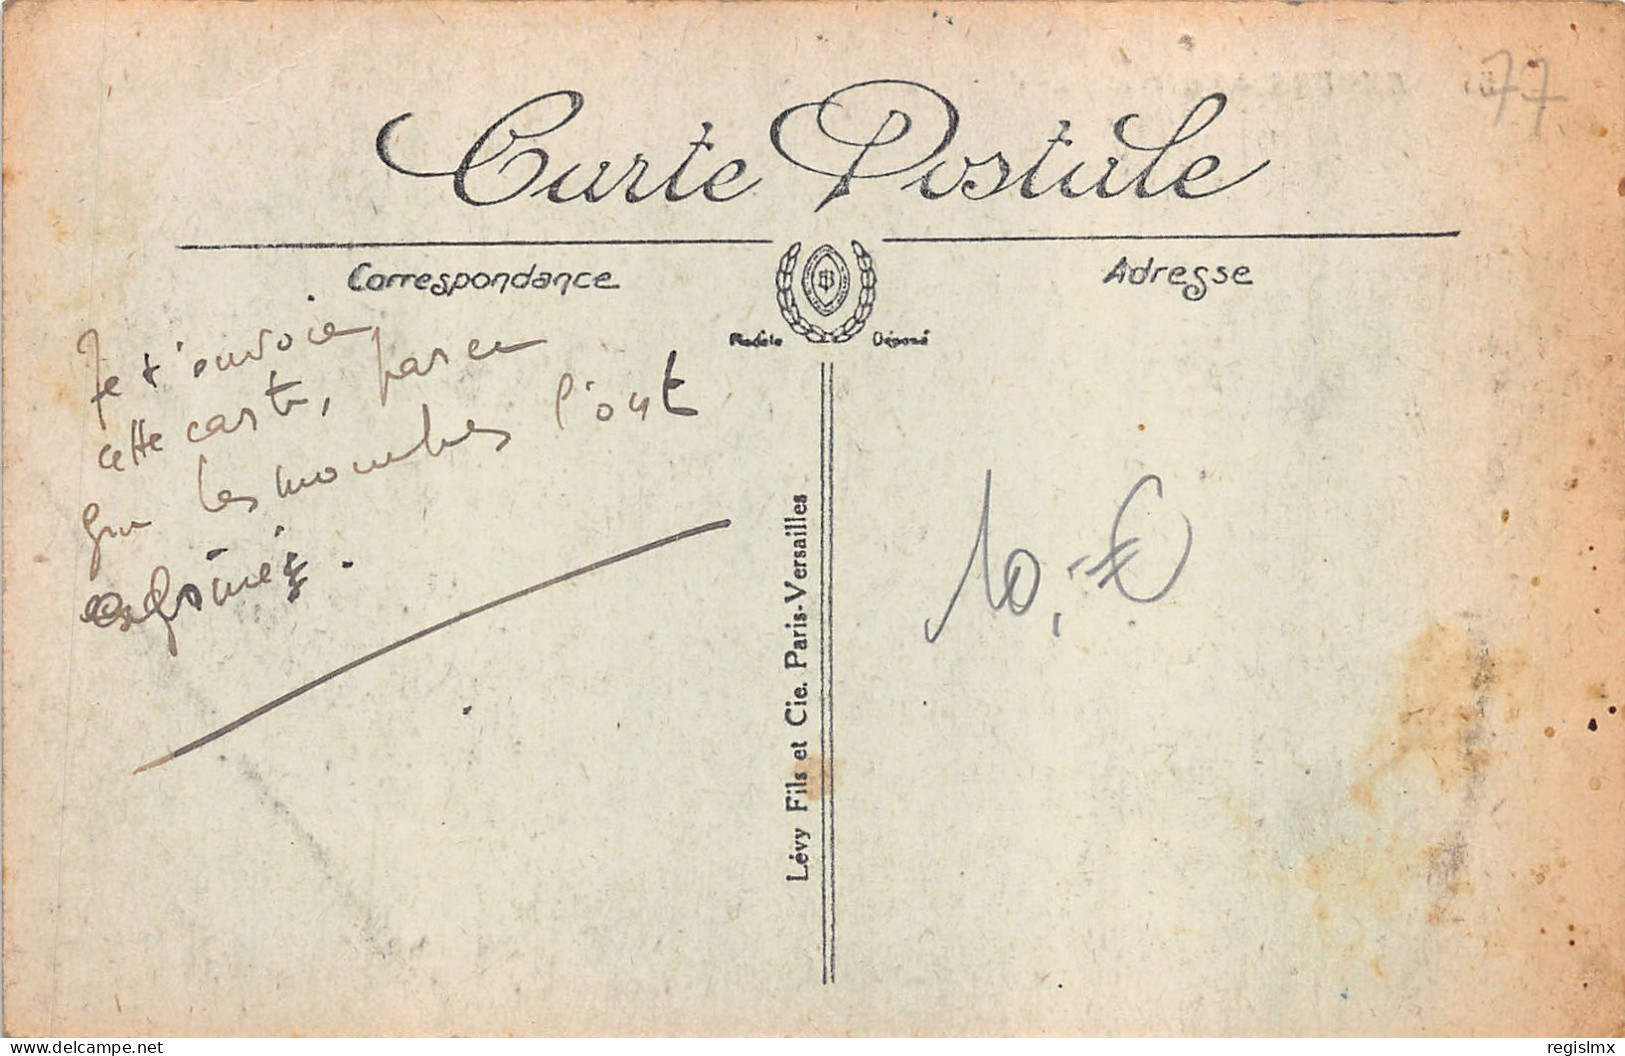 77
Carte Postale
Correspondance
Adresse
Modèle Déposé
Je t'envoie
cette carte, parce
que les mouches l'ont
abîmée.
Lévy Fils et Cie. Paris-Versailles
10,-€
www.delcampe.net
regislmx